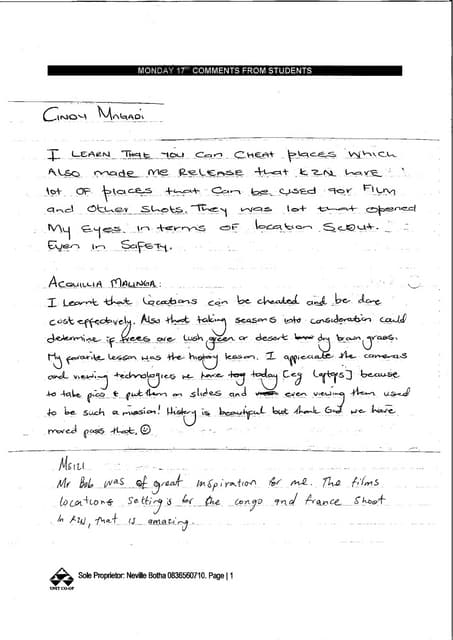 MONDAY 17TH COMMENTS FROM STUDENTS
CINDY
I LEARN THAT YOU Can CHEAT places WHICH
ALSO made me RELEASE that KZN have
lot OF places that Can be USED FOR FILM
and OTHER SHOTS. They was lot that opened
My EYES. In terms OF location SCOUT.
Even in SAFETY.
ACQUILLIA MALINGA:
I learnt that locations can be cheated and be done
cost effectively. Also that taking seasons into consideration could
determine if trees are lush green or desert dry brown grass.
My favorite lesson was the history lesson. I appreciate the cameras
and viewing technologies we have today [eg laptops] because
to take pics & put them on slides and even viewing them used
to be such a mission! History is beautiful but thank God we have
moved pass that. ☺
MSIZI
Mr Bob was of great inspiration for me. The films
locations setting's for the congo and france shoot
in KZN, that is amazing.
UNIT CO-OP
Sole Proprietor: Neville Botha 0836560710. Page | 1